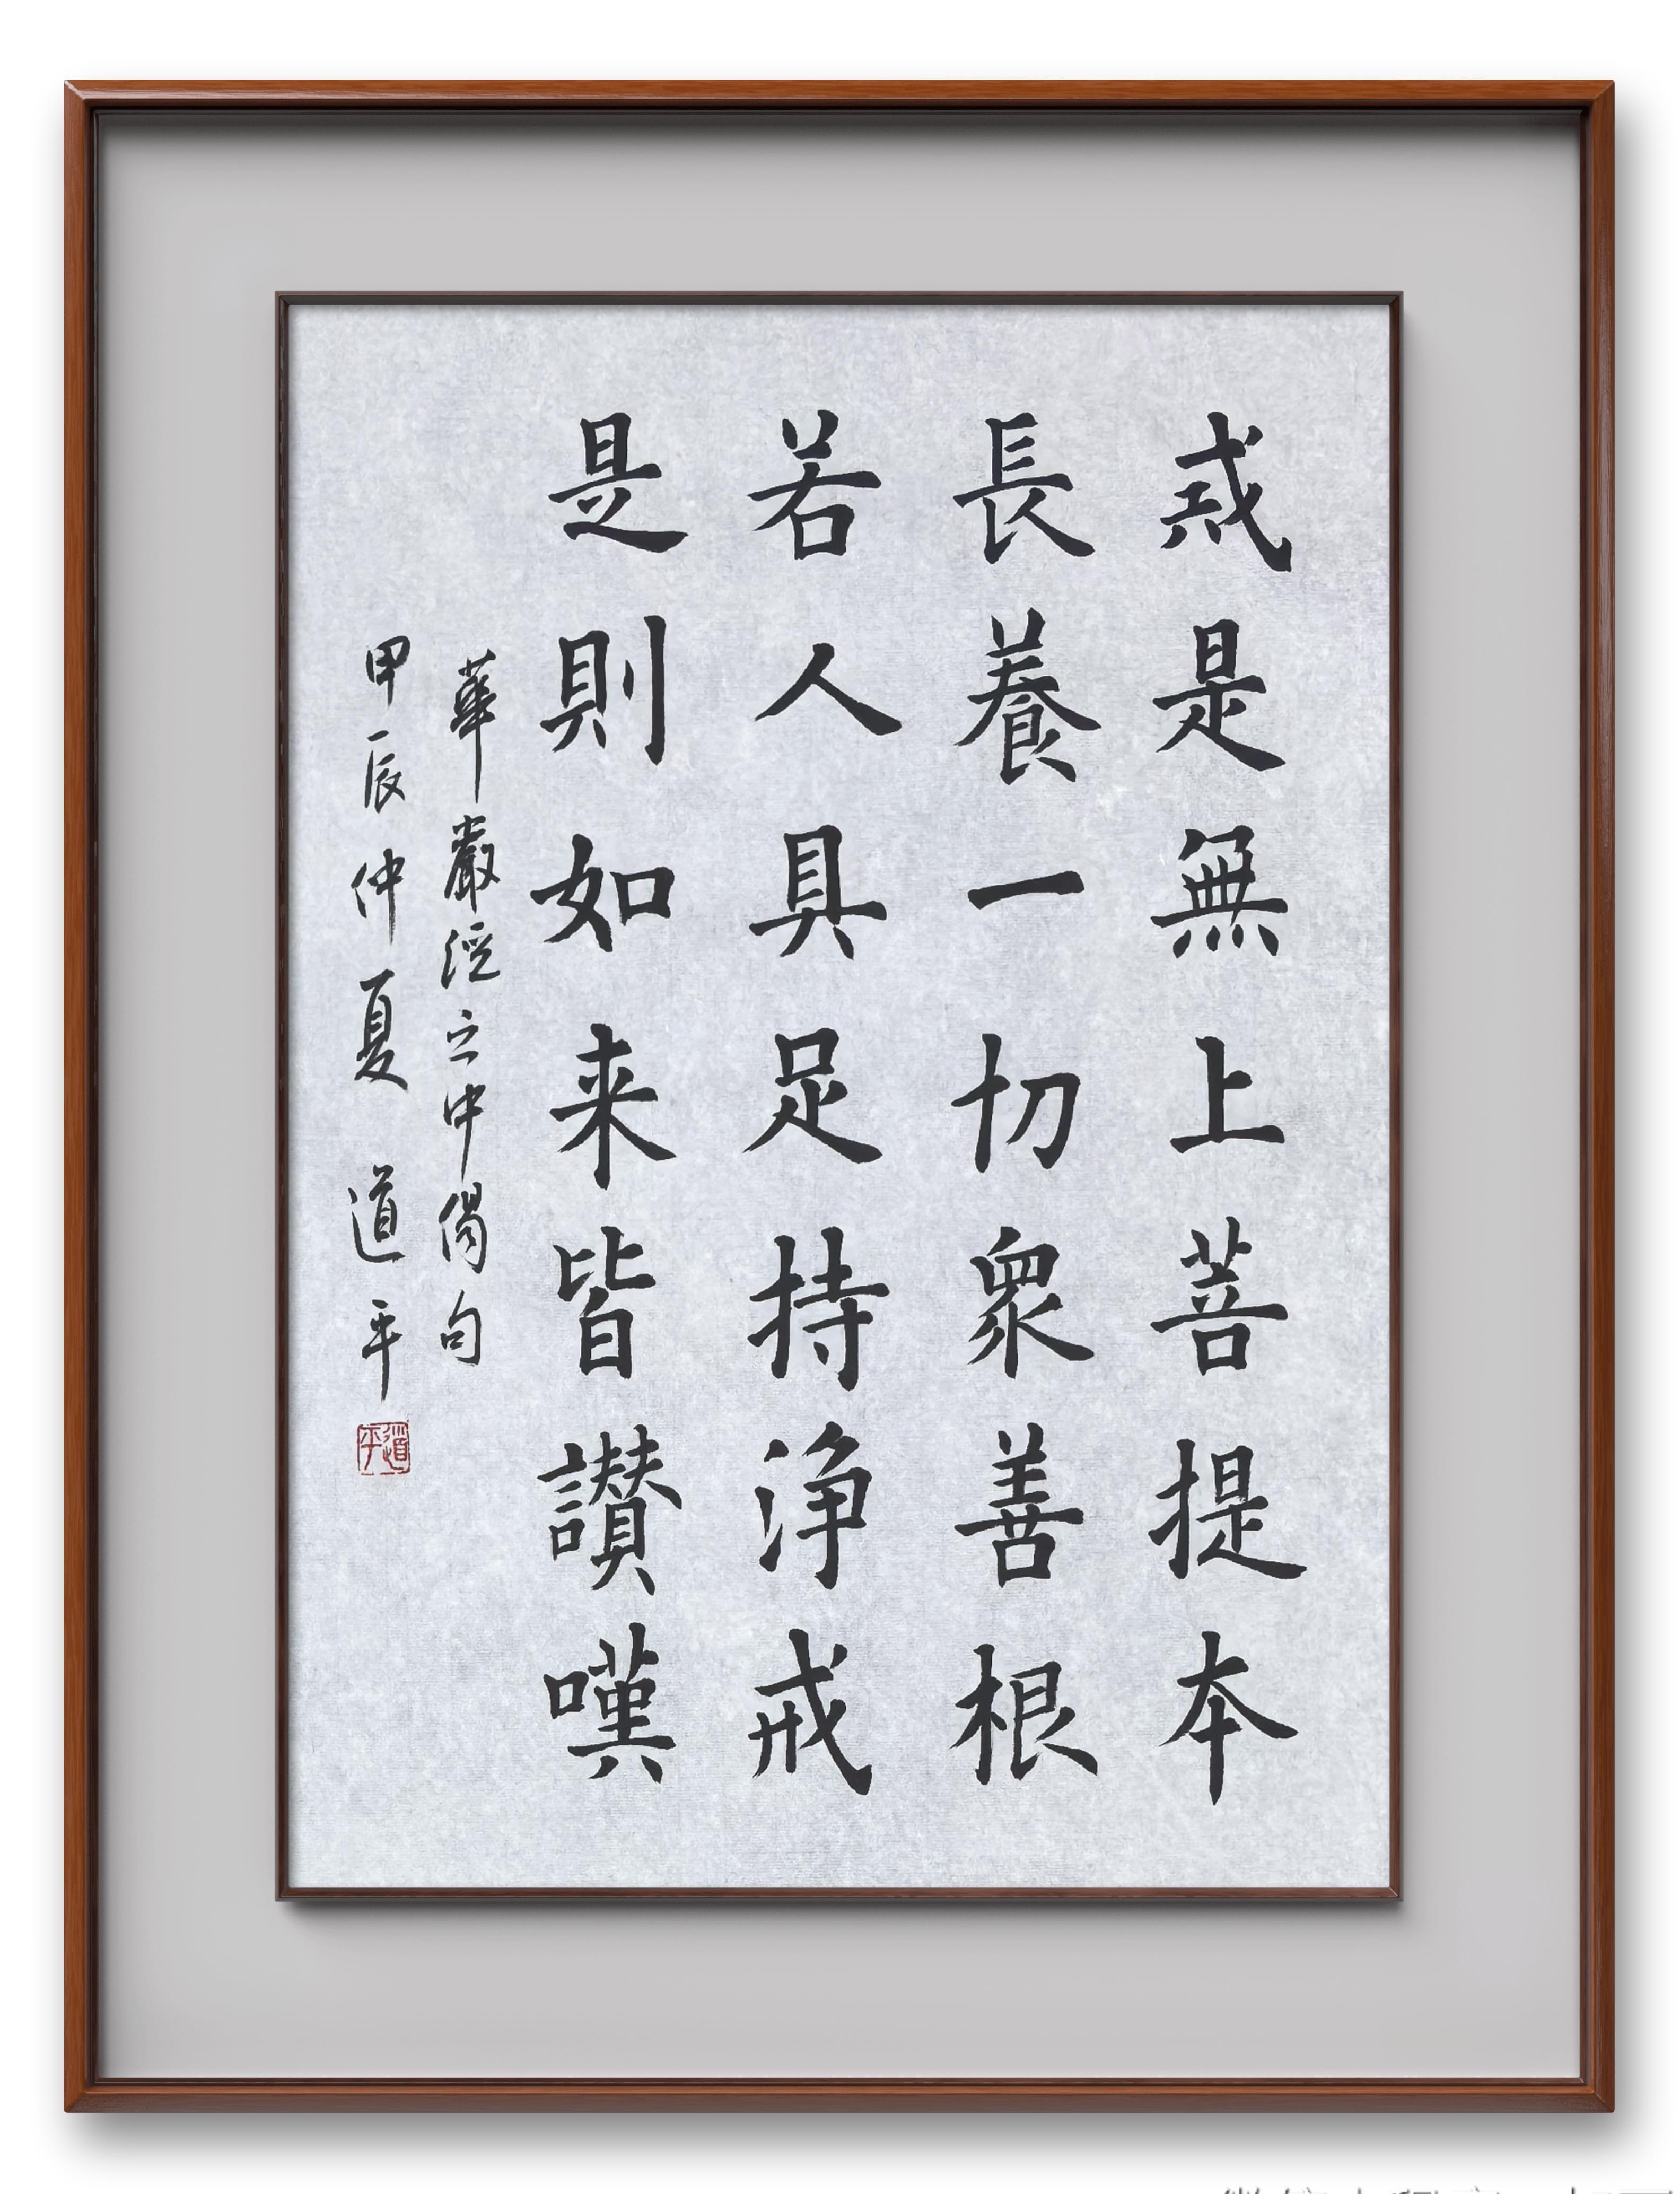 戒是無上菩提本
長養一切衆善根
若人具足持浄戒
是則如来皆讃嘆
華嚴經之中偈句
甲辰仲夏 道平
道平